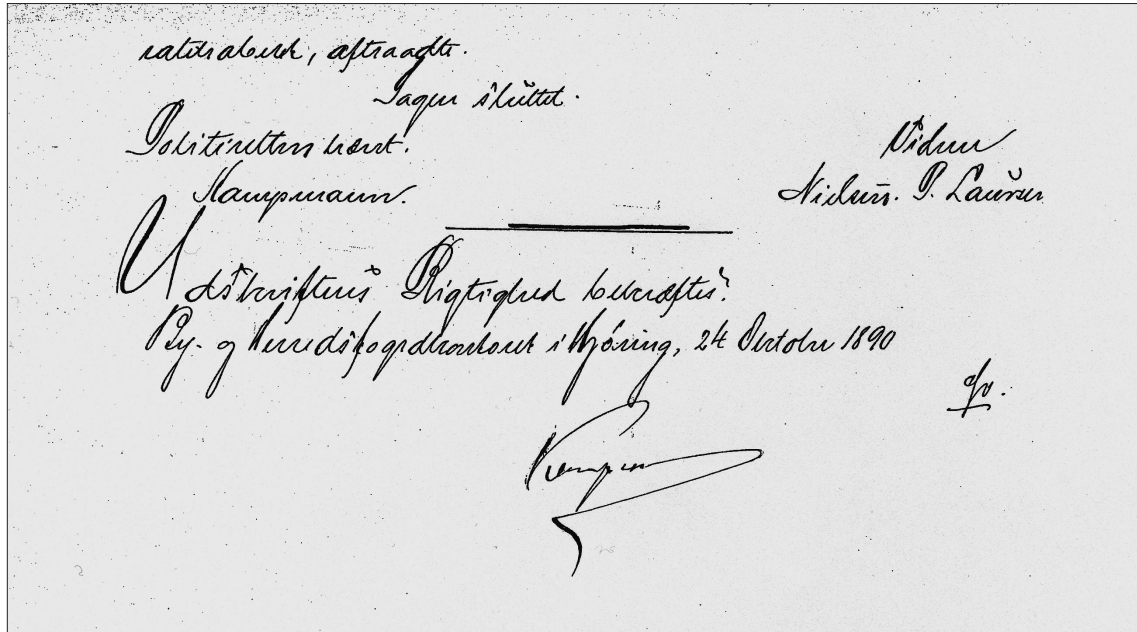 aftraadte.
Sagen sluttet.
Politiretten hævet.
Kampmann.
Vidner
Nielsen. P. Laursen
Udskriftens Rigtighed bekræftes.
By- og Herredsfogedkontoret i Hjöring, 24 Oktober 1890
Kampmann